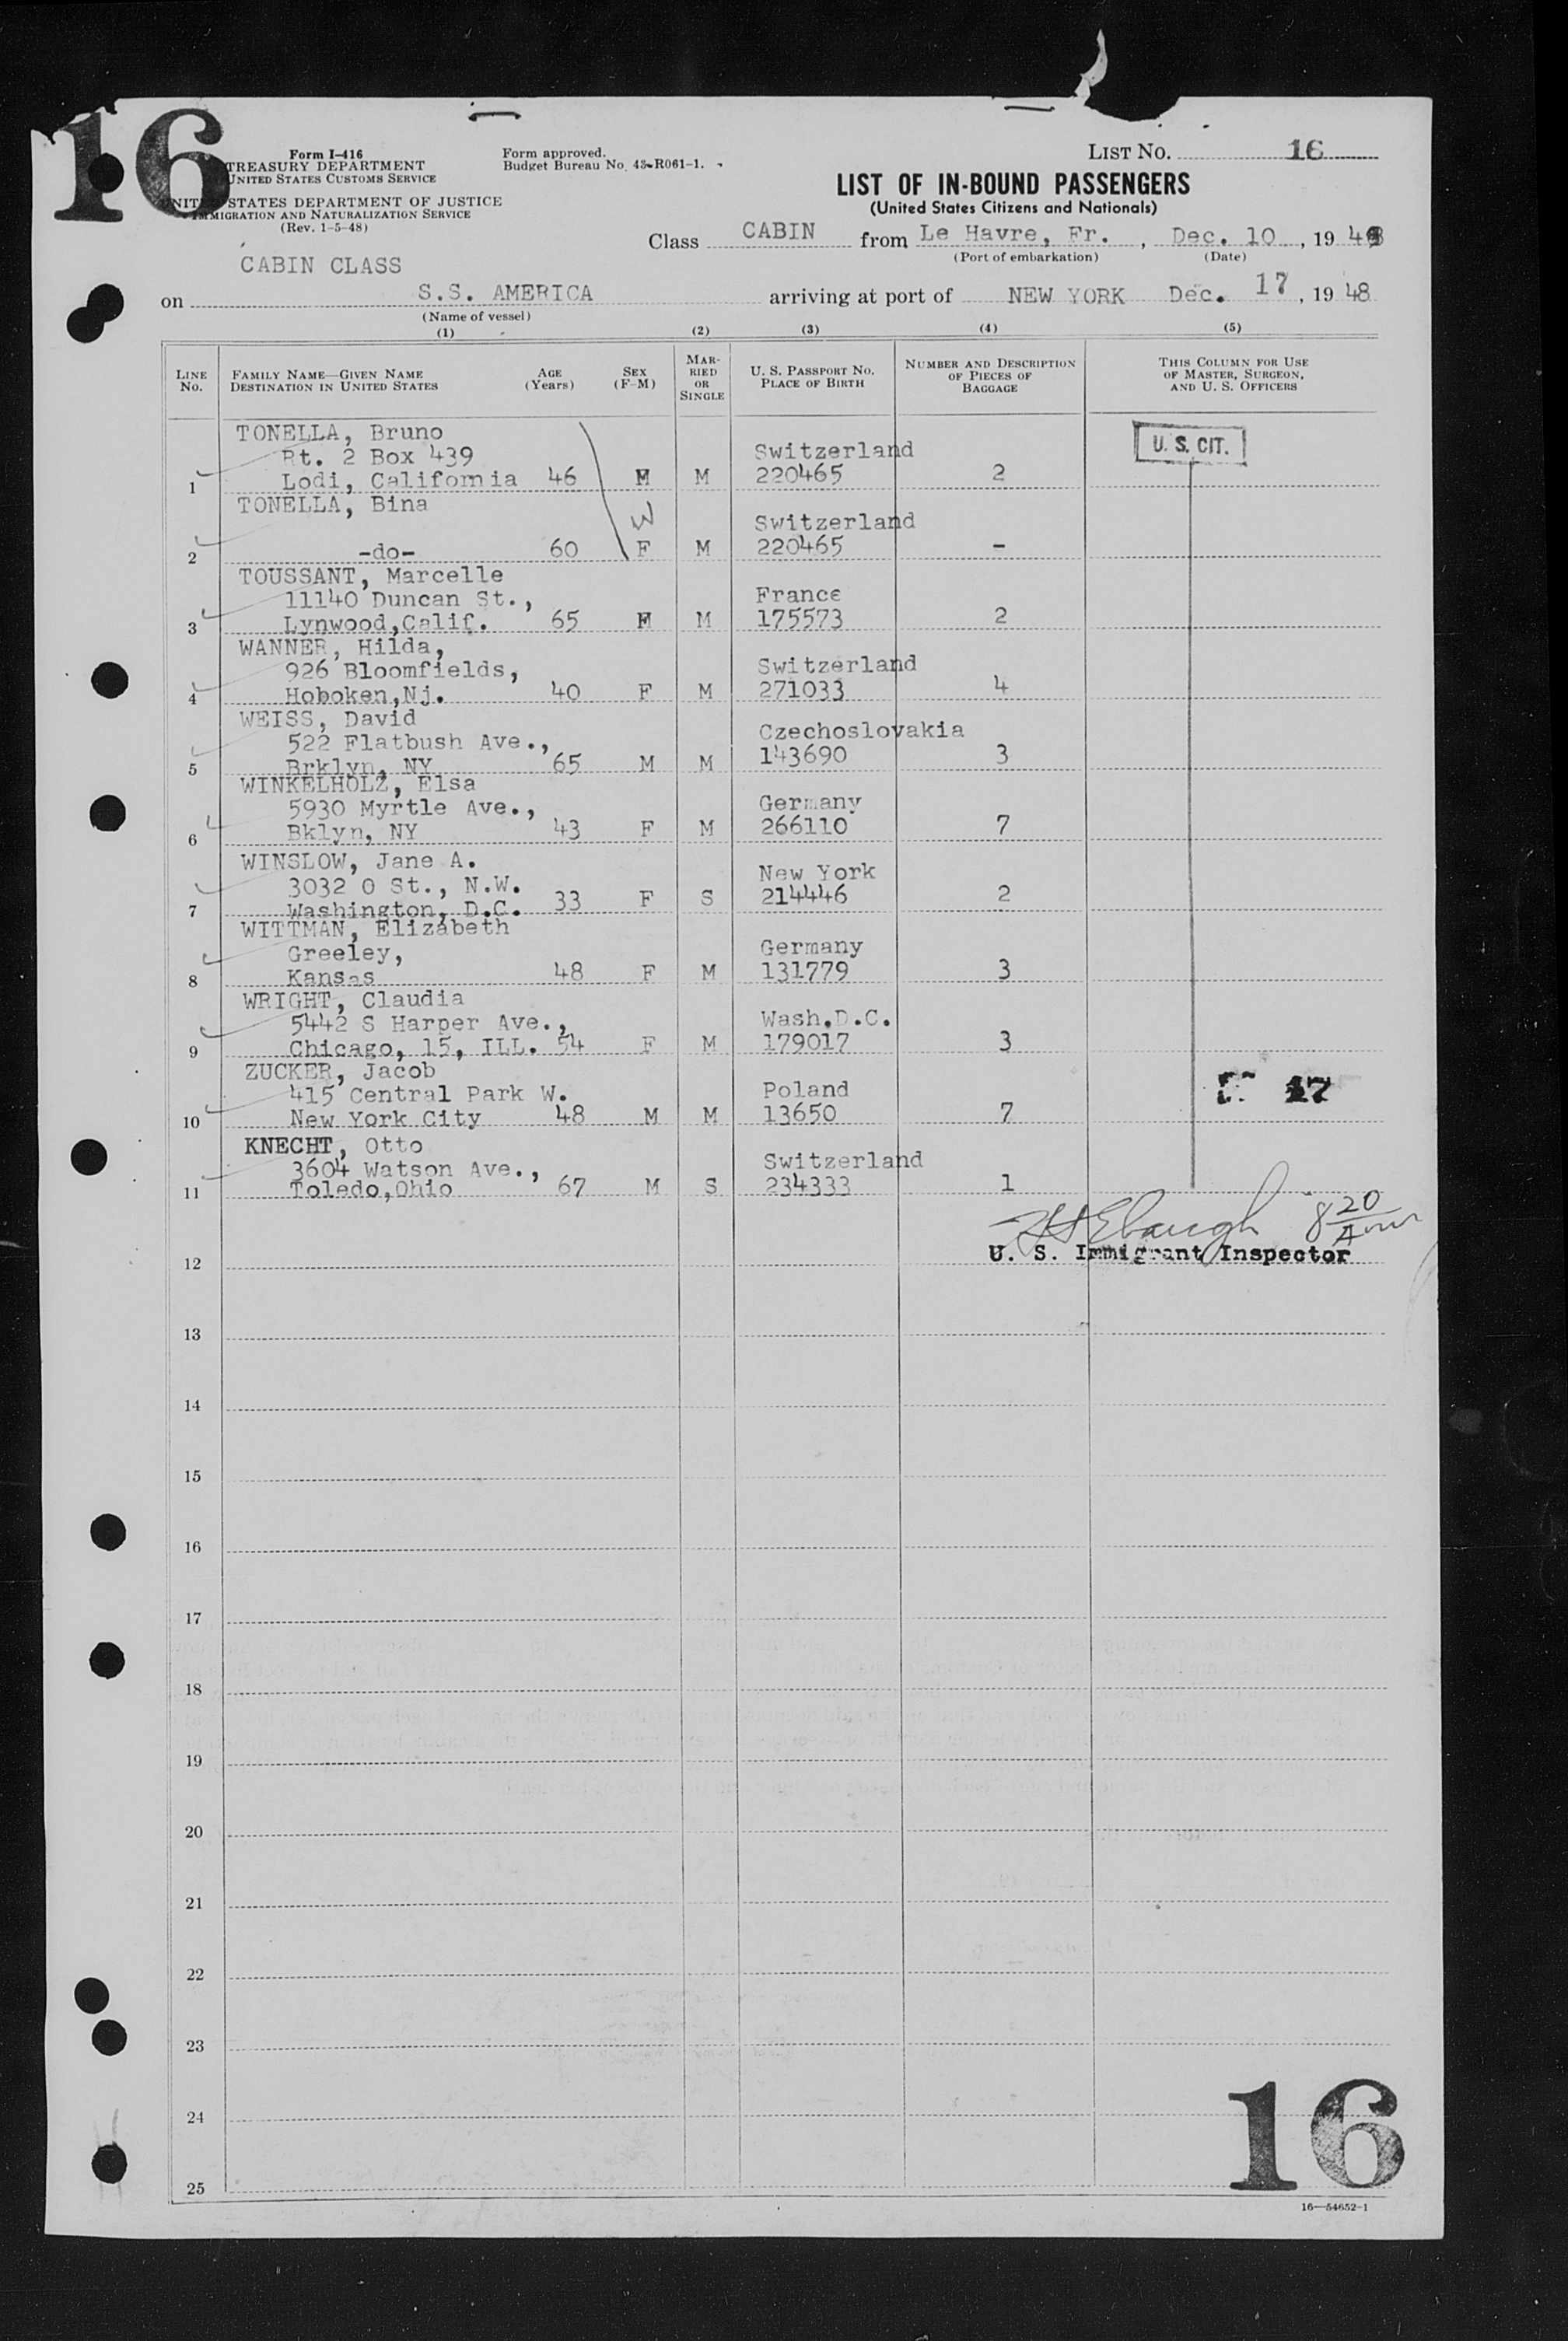 16
Form I-416
TREASURY DEPARTMENT
UNITED STATES CUSTOMS SERVICE
UNITED STATES DEPARTMENT OF JUSTICE
IMMIGRATION AND NATURALIZATION SERVICE
(Rev. 1-5-48)
Form approved.
Budget Bureau No. 43-R061-1.
LIST NO. 16
LIST OF IN-BOUND PASSENGERS
(United States Citizens and Nationals)
Class CABIN from Le Havre, Fr., Dec. 10, 1948
(Port of embarkation) (Date)
CABIN CLASS
on S.S. AMERICA arriving at port of NEW YORK Dec. 17, 1948
(Name of vessel)
(1) (2) (3) (4) (5)
LINE No. FAMILY NAME—GIVEN NAME DESTINATION IN UNITED STATES AGE (Years) SEX (F-M) MARRIED OR SINGLE U. S. PASSPORT NO. PLACE OF BIRTH NUMBER AND DESCRIPTION OF PIECES OF BAGGAGE THIS COLUMN FOR USE OF MASTER, SURGEON, AND U. S. OFFICERS
TONELLA, Bruno
Rt. 2 Box 439 Switzerland U. S. CIT.
1 Lodi, California 46 M M 220465 2
TONELLA, Bina
W Switzerland
2 -do- 60 F M 220465 -
TOUSSANT, Marcelle
11140 Duncan St., France
3 Lynwood,Calif. 65 M 175573 2
WANNER, Hilda,
926 Bloomfields, Switzerland
4 Hoboken,Nj. 40 F M 271033 4
WEISS, David
522 Flatbush Ave., Czechoslovakia
5 Brklyn, NY 65 M M 143690 3
WINKELHOLZ, Elsa
5930 Myrtle Ave., Germany
6 Bklyn, NY 43 F M 266110 7
WINSLOW, Jane A.
3032 O St., N.W. New York
7 Washington, D.C. 33 F S 214446 2
WITTMAN, Elizabeth
Greeley, Germany
8 Kansas 48 F M 131779 3
WRIGHT, Claudia
5442 S Harper Ave., Wash.D.C.
9 Chicago, 15, ILL. 54 F M 179017 3
ZUCKER, Jacob
415 Central Park W. Poland 17
10 New York City 48 M M 13650 7
KNECHT, Otto
3604 Watson Ave., Switzerland
11 Toledo,Ohio 67 M S 234333 1
Ebaugh 8 20
U. S. Immigrant Inspector
12
13
14
15
16
17
18
19
20
21
22
23
24
25
16
16—54652-1